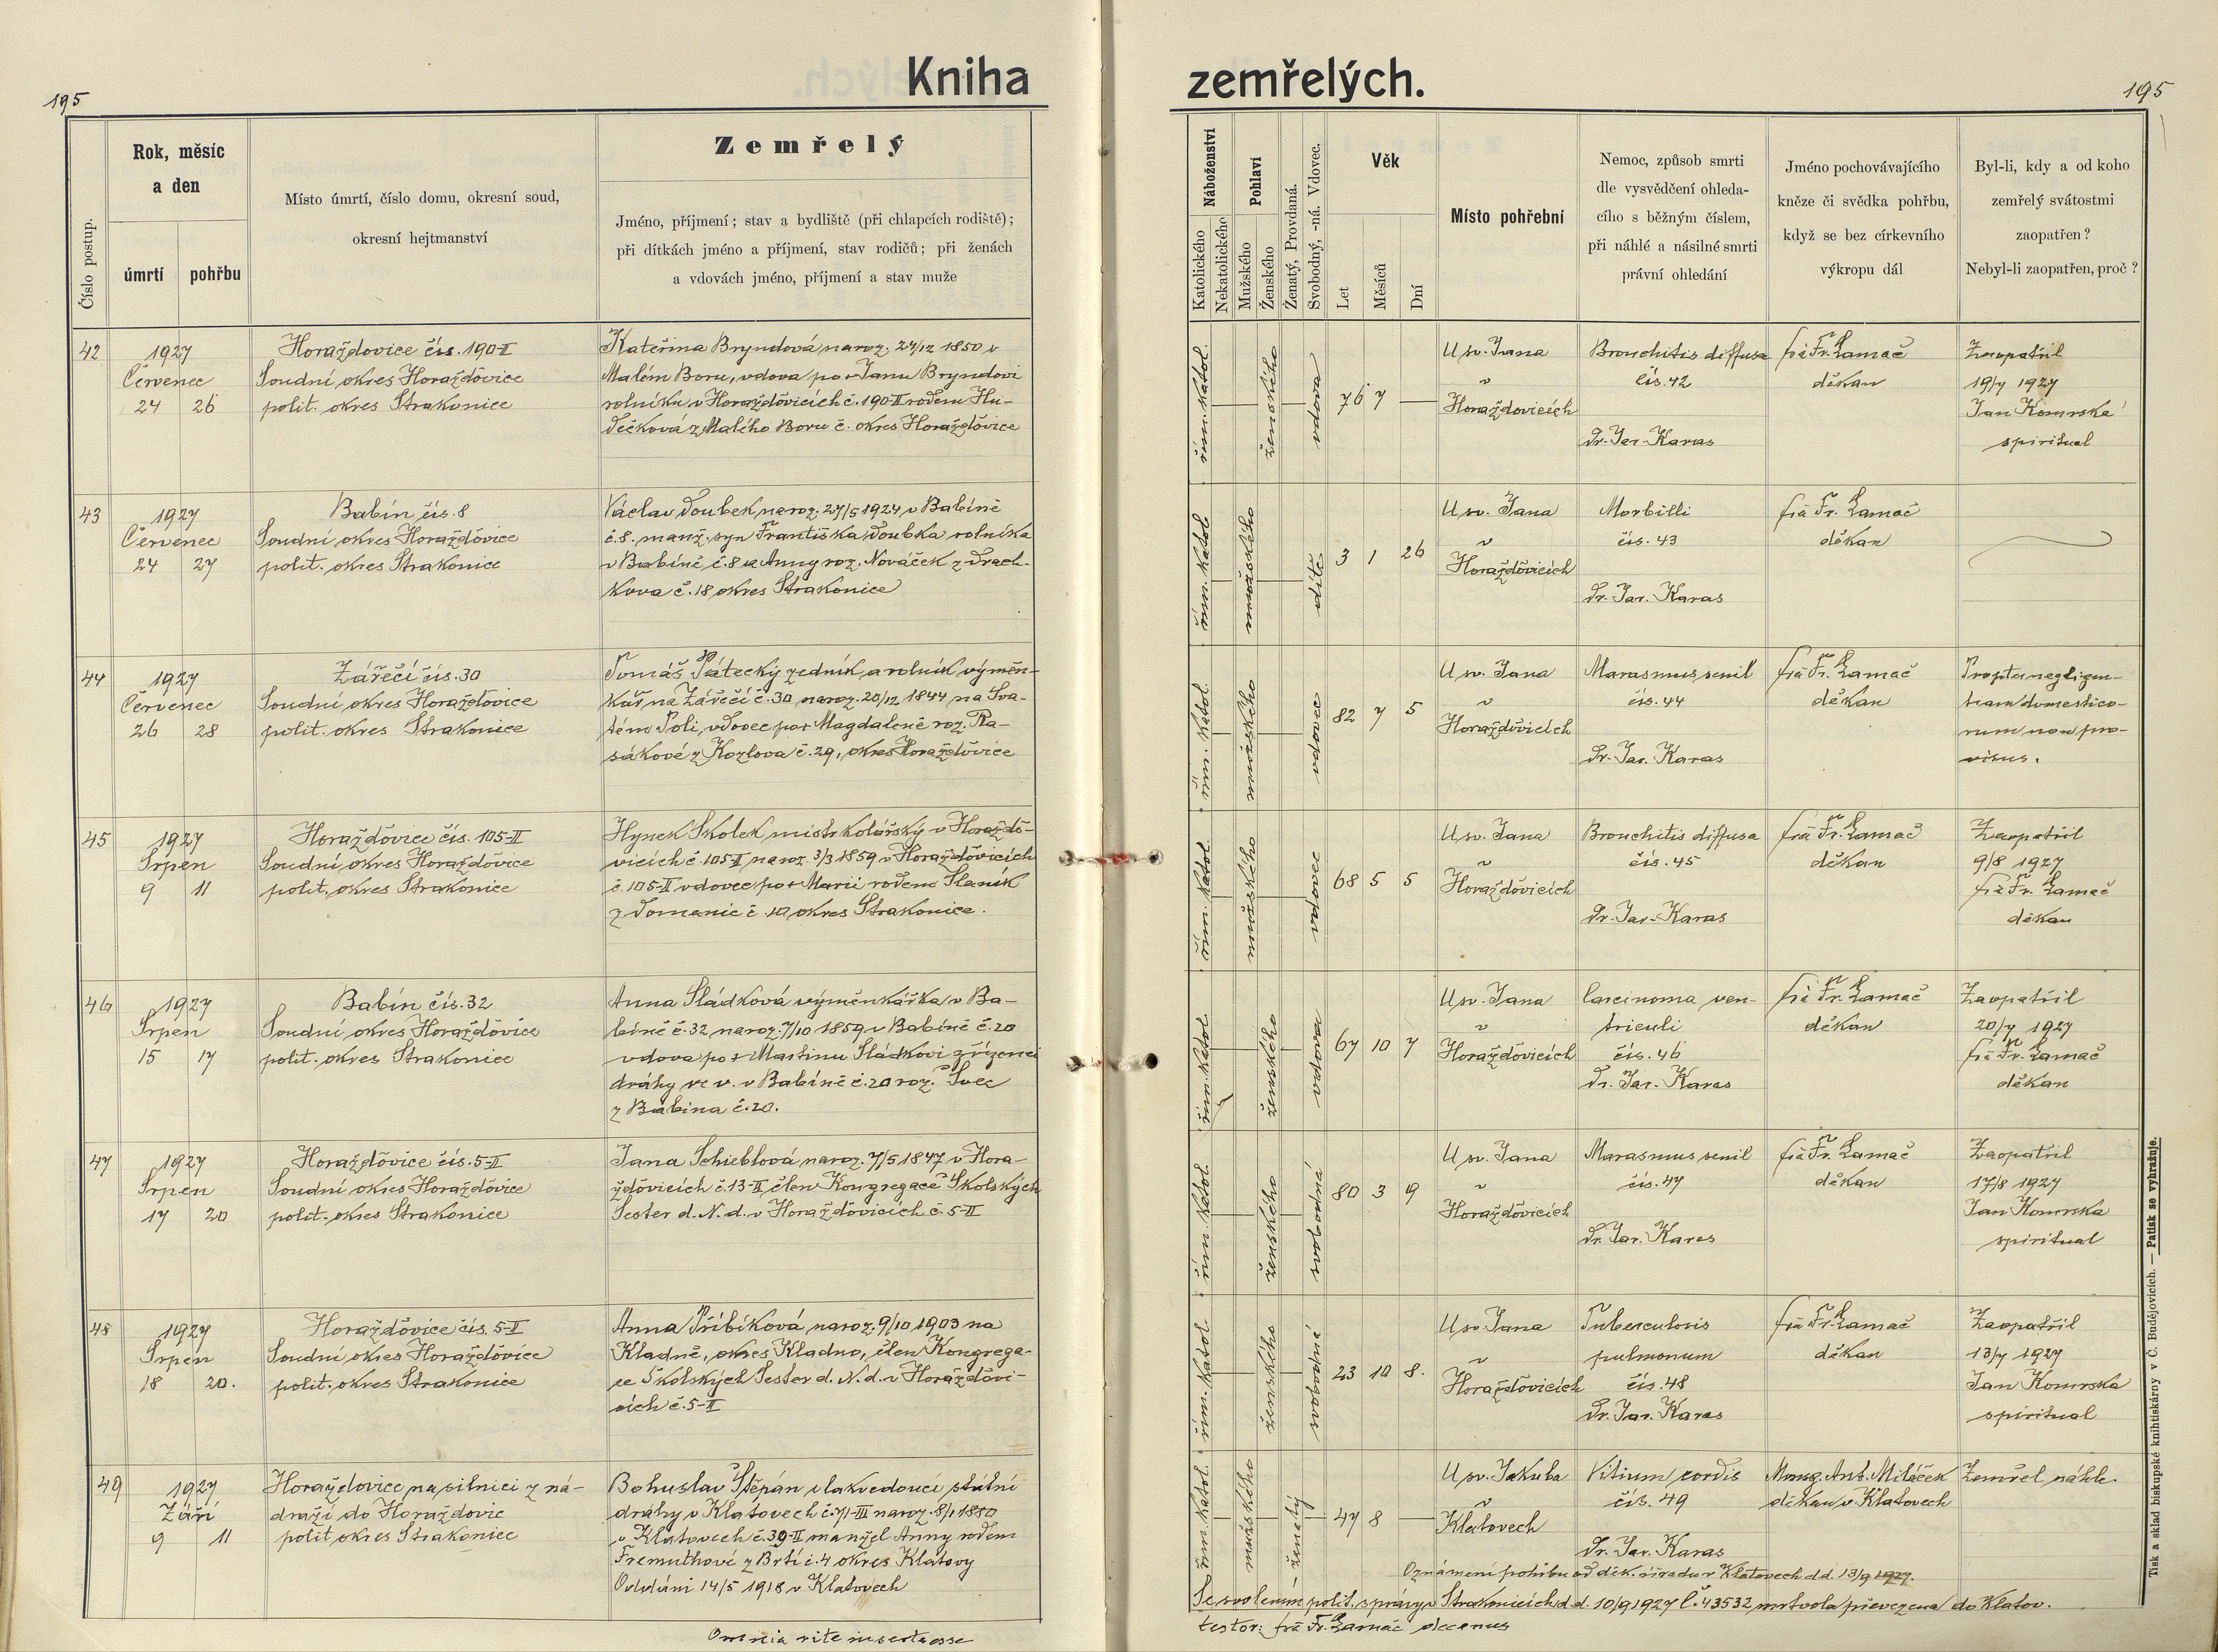 195
Kniha zemřelých.
195
Číslo postup.
Rok, měsíc
a den
úmrtí
pohřbu
Místo úmrtí, číslo domu, okresní soud,
okresní hejtmanství
Zemřelý
Jméno, příjmení; stav a bydliště (při chlapcích rodiště);
při dítkách jméno a příjmení, stav rodičů; při ženách
a vdovách jméno, příjmení a stav muže
Náboženství
Katolického
Nekatolického
Pohlaví
Mužského
Ženského
Ženatý, Provdaná.
Svobodný, -ná. Vdovec.
Věk
Let
Měsíců
Dní
Místo pohřební
Nemoc, způsob smrti
dle vysvědčení ohleda-
cího s běžným číslem,
při náhlé a násilné smrti
právní ohledání
Jméno pochovávajícího
kněze či svědka pohřbu,
když se bez církevního
výkropu dál
Byl-li, kdy a od koho
zemřelý svátostmi
zaopatřen?
Nebyl-li zaopatřen, proč?
42
1927
Červenec
24 26
Horažďovice čís. 190-II
Soudní okres Horažďovice
polit. okres Strakonice
Kateřina Bryndová naroz. 27/12 1850 v
Malém Boru, vdova po + Janu Bryndovi
rolníku v Horažďovicích č. 190-II rodem Hu-
dečkova z Malého Boru č. okres Horažďovice
řím. katol.
ženského
vdova
76 7 —
U sv. Jana
v
Horažďovicích
Bronchitis diffusa
čís. 42
Dr. Jar. Karas
frà Fr. Lamač
děkan
Zaopatřil
19/7 1927
Jan Komrska
spirituál
43
1927
Červenec
24 27
Babín čís. 8
Soudní okres Horažďovice
polit. okres Strakonice
Václav Doubek naroz. 27/5 1924 v Babíně
č. 8. manž. syn Františka Doubka rolníka
v Babíně č. 8 a Anny roz. Nováček z Drach-
kova č. 18 okres Strakonice
řím. katol.
mužského
dítě
3 1 26
U sv. Jana
v
Horažďovicích
Morbilli
čís. 43
Dr. Jar. Karas
frà Fr. Lamač
děkan
44
1927
Červenec
26 28
Zářečí čís. 30
Soudní okres Horažďovice
polit. okres Strakonice
Tomáš Pátecký zedník a rolník výměn-
kář na Zářečí č. 30 naroz. 20/12 1844 na Sva-
tém Poli, vdovec po + Magdaleně roz. Ra-
sákové z Kozlova č. 29, okres Horažďovice
řím. katol.
mužského
vdovec
82 7 5
U sv. Jana
v
Horažďovicích
Marasmus senil
čís. 44
Dr. Jar. Karas
frà Fr. Lamač
děkan
Propter negligen-
tiam domestico-
rum non pro-
visus.
45
1927
Srpen
9 11
Horažďovice čís. 105-II
Soudní okres Horažďovice
polit. okres Strakonice
Hynek Skolek mistr kolářský v Horaždo-
vicích č. 105-II naroz. 3/3 1859 v Horažďovicích
č. 105-II vdovec po + Marii rodem Slaník
z Domanic č. 10 okres Strakonice.
řím. katol.
mužského
vdovec
68 5 5
U sv. Jana
v
Horažďovicích
Bronchitis diffusa
čís. 45
Dr. Jar. Karas
frà Fr. Lamač
děkan
Zaopatřil
9/8 1927
frà Fr. Lamač
děkan
46
1927
Srpen
15 17
Babín čís. 32
Soudní okres Horažďovice
polit. okres Strakonice
Anna Sládková výměnkářka v Ba-
bíně č. 32 naroz. 7/10 1859 v Babíně č. 20
vdova po + Martinu Sládkovi zřízenci
dráhy ve v. v Babíně č. 20 roz. Švec
z Babína č. 20.
řím. katol.
ženského
vdova
67 10 7
U sv. Jana
v
Horažďovicích
Carcinoma ven-
triculi
čís. 46
Dr. Jar. Karas
frà Fr. Lamač
děkan
Zaopatřil
20/7 1927
frà Fr. Lamač
děkan
47
1927
Srpen
17 20
Horažďovice čís. 5-II
Soudní okres Horažďovice
polit. okres Strakonice
Jana Schieblová naroz. 7/5 1847 v Hora-
žďovicích č. 13-II člen Kongregace Školských
Sester d. N. d. v Horažďovicích č. 5-II
řím. katol.
ženského
svobodná
80 3 9
U sv. Jana
v
Horažďovicích
Marasmus senil
čís. 47
Dr. Jar. Karas
frà Fr. Lamač
děkan
Zaopatřil
17/8 1927
Jan Komrska
spirituál
48
1927
Srpen
18 20.
Horažďovice čís. 5-II
Soudní okres Horažďovice
polit. okres Strakonice
Anna Přibíková naroz. 9/10 1903 na
Kladně, okres Kladno, člen Kongrega-
ce Školských Sester d. N. d. v Horažďovi-
cích č. 5-II
řím. katol.
ženského
svobodná
23 10 8.
U sv. Jana
v
Horažďovicích
Tuberculosis
pulmonum
čís. 48
Dr. Jar. Karas
frà Fr. Lamač
děkan
Zaopatřil
13/7 1927
Jan Komrska
spirituál
49
1927
Září
9 11
Horažďovice na silnici z ná-
draží do Horažďovic
polit okres Strakonice
Bohuslav Štěpán vlakvedoucí státní
dráhy v Klatovech č. 71-III naroz. 8/1 1880
v Klatovech č. 39-II manžel Anny rodem
Fremuthové z Brtí č. 4 okres Klatovy
Oddáni 14/5 1918 v Klatovech
řím. katol.
mužského
ženatý
47 8 —
U sv. Jakuba
v
Klatovech
Vitium cordis
čís. 49
Dr. Jar. Karas
Monsg. Ant. Miláček
děkan v Klatovech
Zemřel náhle.
Oznámení pohřbu od děk. úřadu v Klatovech d d. 13/9 1927.
Se svolením polit. správy v Strakonicích d. d. 10/9 1927 č. 43532 mrtvola převezena do Klatov.
Omnia rite inserta esse
testor: frà Fr. Lamač decanus
Tisk a sklad biskupské knihtiskárny v Č. Budějovicích. — Patisk se vyhražuje.